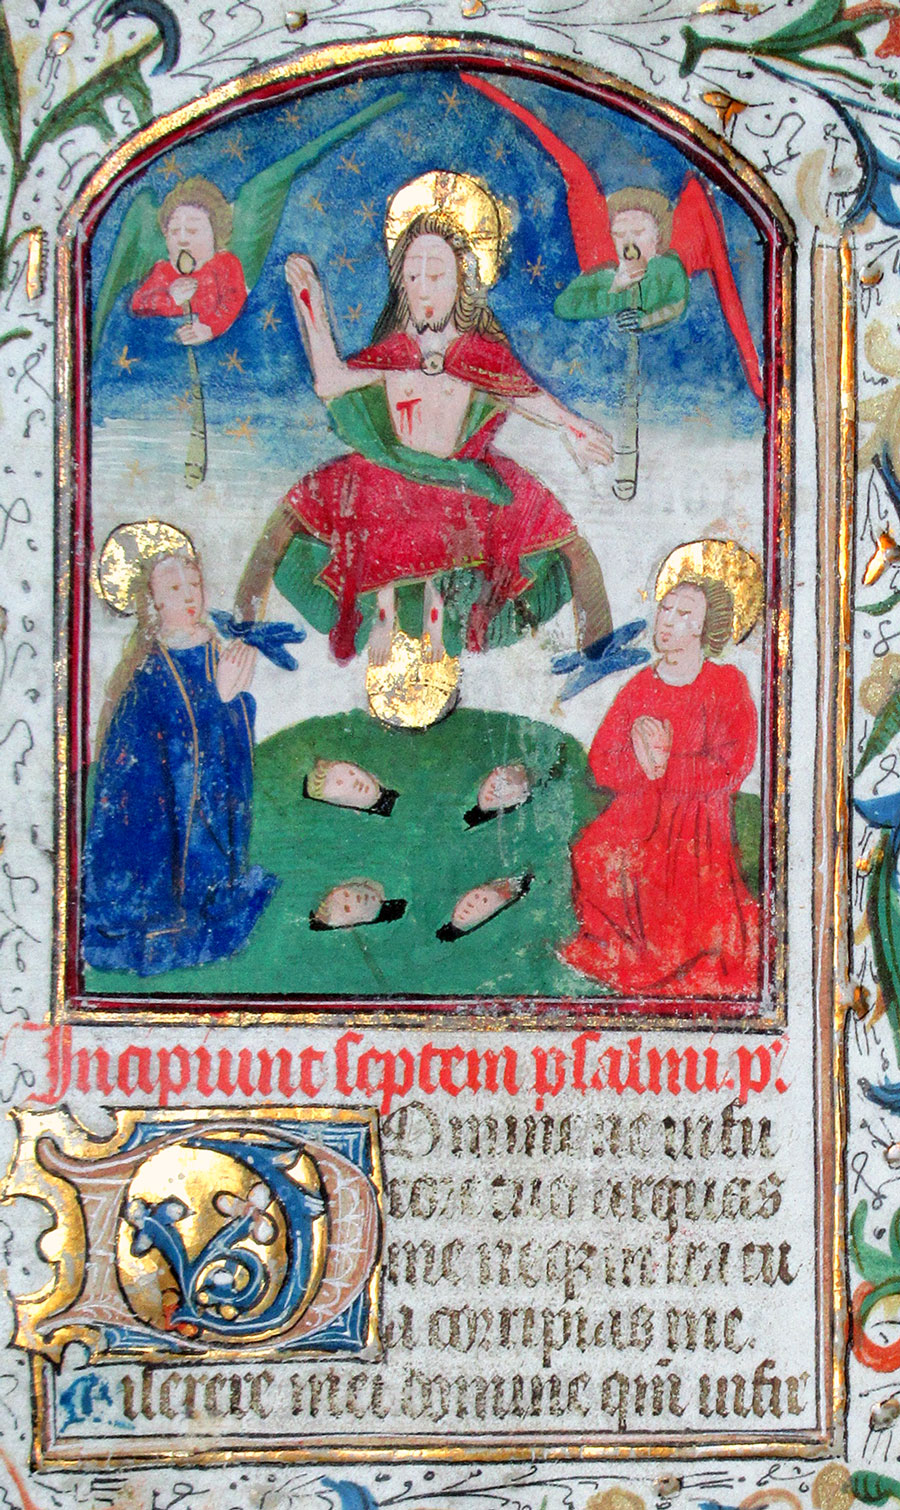 Incipiunt septem psalmi. p̄.
Domine ne in fu
rore tuo arguas
me neqȝ in ira tu
a corripias me.
Miserere mei domine qm̄ infir